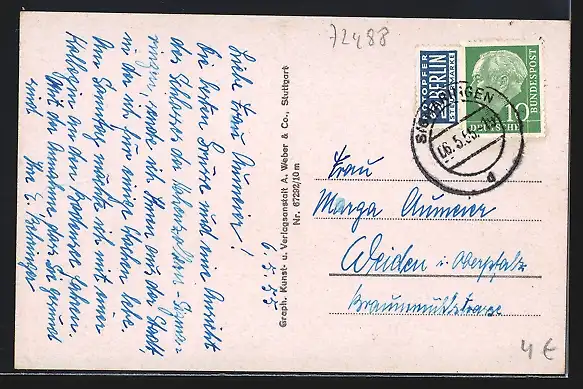 72488
6.5.55
Liebe Frau Aumeier!
Die besten Grüße und eine Ansicht
des Schlosses Hohenzollern-Sigma-
ringen, sende ich Ihnen aus der Stadt
in der ich für einige Wochen lebe.
Am Sonntag möchte ich mit einer
Kollegin an den Bodensee fahren.
Mit der Annahme, dass Sie gesund
sind Ihre E.
Graph. Kunst- u. Verlagsanstalt A. Weber & Co., Stuttgart
Nr. 67292/10 m
NOTOPFER
2 BERLIN
STEUERMARKE
DEUTSCHE
BUNDESPOST
10
SIGMARINGEN
06.5.55
a
Frau
Marga Aumeier
Weiden i. Oberpfalz
Braunmühlstrasse
4 €